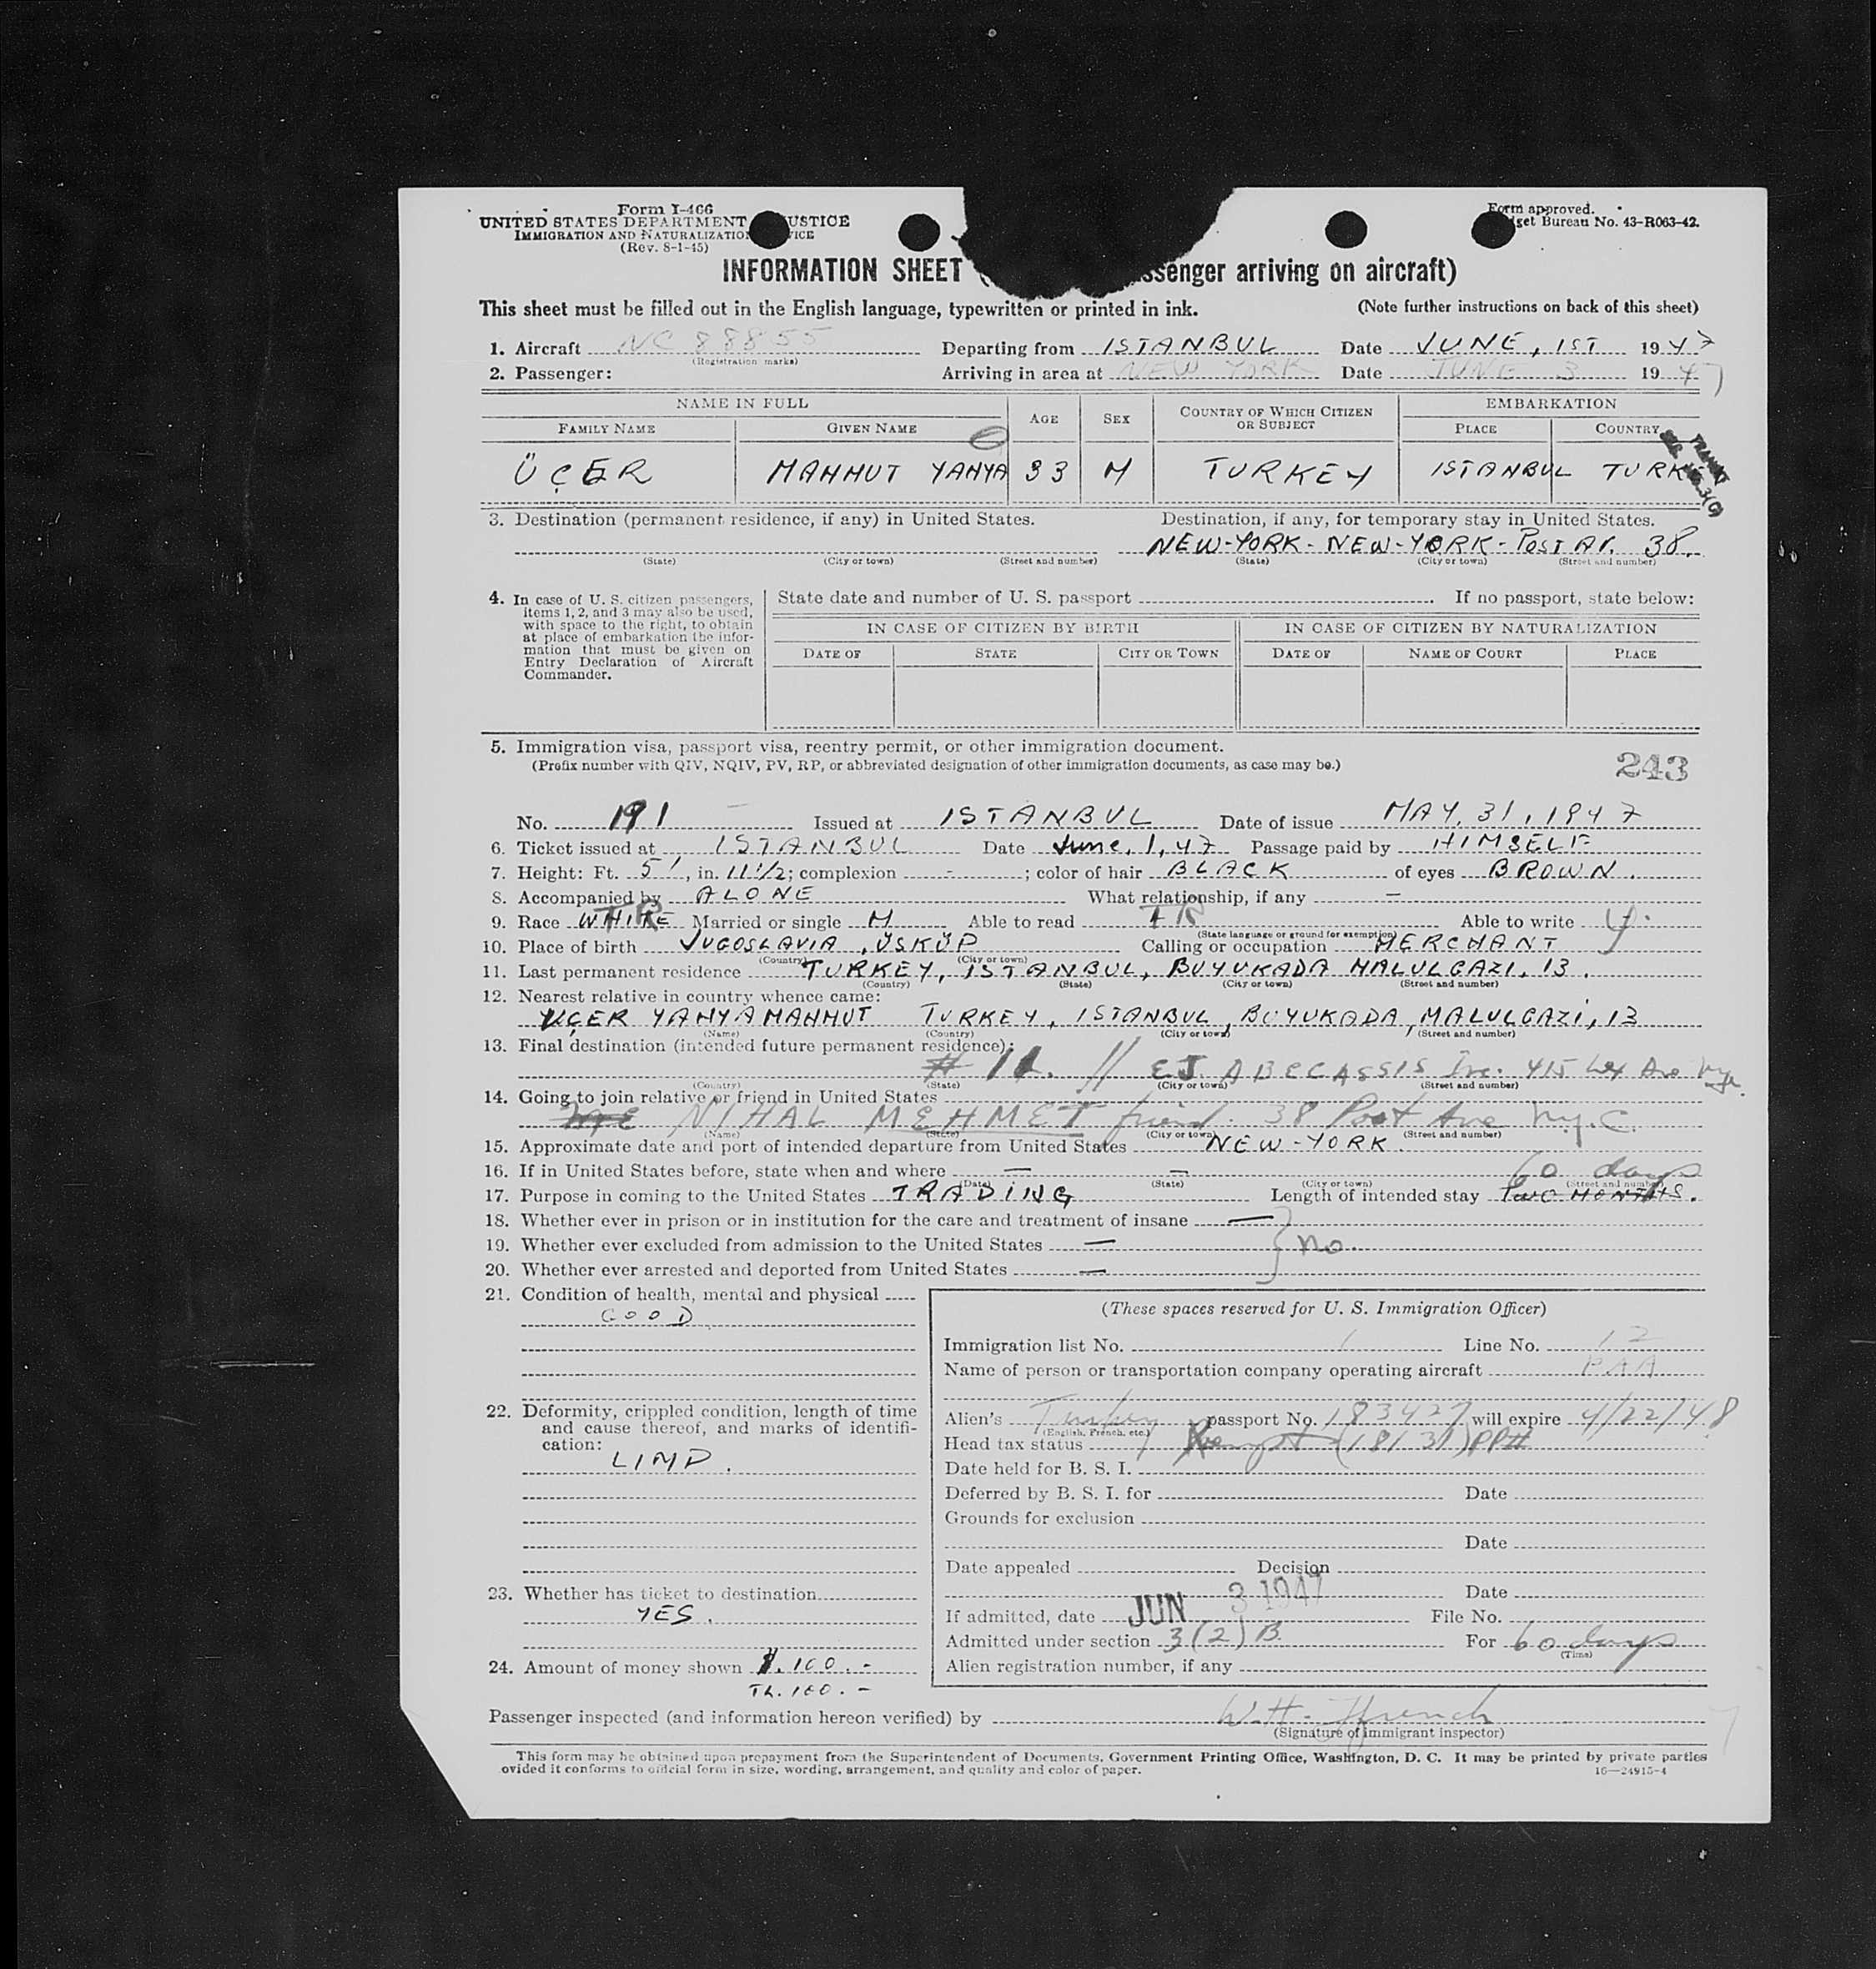 Form I-466
UNITED STATES DEPARTMENT USTICE
IMMIGRATION AND NATURALIZATION VICE
(Rev. 8-1-45)
Form approved.
get Bureau No. 43-R063-42.
INFORMATION SHEET ( ssenger arriving on aircraft)
This sheet must be filled out in the English language, typewritten or printed in ink. (Note further instructions on back of this sheet)
1. Aircraft NC 88855 Departing from ISTANBUL Date JUNE, 1ST 1947
(Registration marks)
2. Passenger: Arriving in area at NEW YORK Date JUNE 3 1947
NAME IN FULL AGE SEX COUNTRY OF WHICH CITIZEN OR SUBJECT EMBARKATION
FAMILY NAME GIVEN NAME PLACE COUNTRY
ÜÇER MAHMUT YAHYA 33 M TURKEY ISTANBUL TURK
3. Destination (permanent residence, if any) in United States. Destination, if any, for temporary stay in United States.
NEW-YORK - NEW-YORK - Post Av. 38.
(State) (City or town) (Street and number) (State) (City or town) (Street and number)
4. In case of U. S. citizen passengers, items 1, 2, and 3 may also be used, with space to the right, to obtain at place of embarkation the information that must be given on Entry Declaration of Aircraft Commander.
State date and number of U. S. passport If no passport, state below:
IN CASE OF CITIZEN BY BIRTH IN CASE OF CITIZEN BY NATURALIZATION
DATE OF STATE CITY OR TOWN DATE OF NAME OF COURT PLACE
5. Immigration visa, passport visa, reentry permit, or other immigration document.
(Prefix number with QIV, NQIV, PV, RP, or abbreviated designation of other immigration documents, as case may be.)
243
No. 191 Issued at ISTANBUL Date of issue MAY, 31, 1947
6. Ticket issued at ISTANBUL Date June, 1, 47 Passage paid by HIMSELF
7. Height: Ft. 5', in. 11 1/2; complexion - ; color of hair BLACK of eyes BROWN.
8. Accompanied by ALONE What relationship, if any —
9. Race WHITE TR Married or single M Able to read TR Able to write y.
(State language or ground for exemption)
10. Place of birth JUGOSLAVIA, ÜSKÜP Calling or occupation MERCHANT
(Country) (City or town)
11. Last permanent residence TURKEY, ISTANBUL, BUYUKADA MALULGAZI, 13.
(Country) (State) (City or town) (Street and number)
12. Nearest relative in country whence came:
UÇER YAHYA MAHMUT TURKEY, ISTANBUL, BUYUKADA, MALULGAZi, 13
(Name) (Country) (City or town) (Street and number)
13. Final destination (intended future permanent residence):
# 11. // EJ ABECASSIS Inc. 415 Lex Ave nyc.
(Country) (State) (City or town) (Street and number)
14. Going to join relative or friend in United States
NIHAL MEHMET friend. 38 Post Ave N.y.C.
(Name) (State) (City or town) (Street and number)
15. Approximate date and port of intended departure from United States NEW-YORK.
16. If in United States before, state when and where — —
(Date) (State) (City or town) (Street and number)
60 days
17. Purpose in coming to the United States TRADING Length of intended stay TWO MONTHS.
18. Whether ever in prison or in institution for the care and treatment of insane —
19. Whether ever excluded from admission to the United States — } no.
20. Whether ever arrested and deported from United States —
21. Condition of health, mental and physical
GOOD
22. Deformity, crippled condition, length of time and cause thereof, and marks of identification:
LIMP.
23. Whether has ticket to destination
YES.
24. Amount of money shown $. 100.-
TL. 100.-
(These spaces reserved for U. S. Immigration Officer)
Immigration list No. 1 Line No. 12
Name of person or transportation company operating aircraft PAA
Alien's Turkey passport No. 183427 will expire 4/22/48
(English, French, etc.)
Head tax status Exempt (18/31) PP#
Date held for B. S. I.
Deferred by B. S. I. for Date
Grounds for exclusion
Date
Date appealed Decision
Date
If admitted, date JUN 3 1947 File No.
Admitted under section 3(2)B For 60 days
(Time)
Alien registration number, if any
Passenger inspected (and information hereon verified) by W.H. Ffrench
(Signature of immigrant inspector)
This form may be obtained upon prepayment from the Superintendent of Documents, Government Printing Office, Washington, D. C. It may be printed by private parties
ovided it conforms to official form in size, wording, arrangement, and quality and color of paper. 16—24915-4